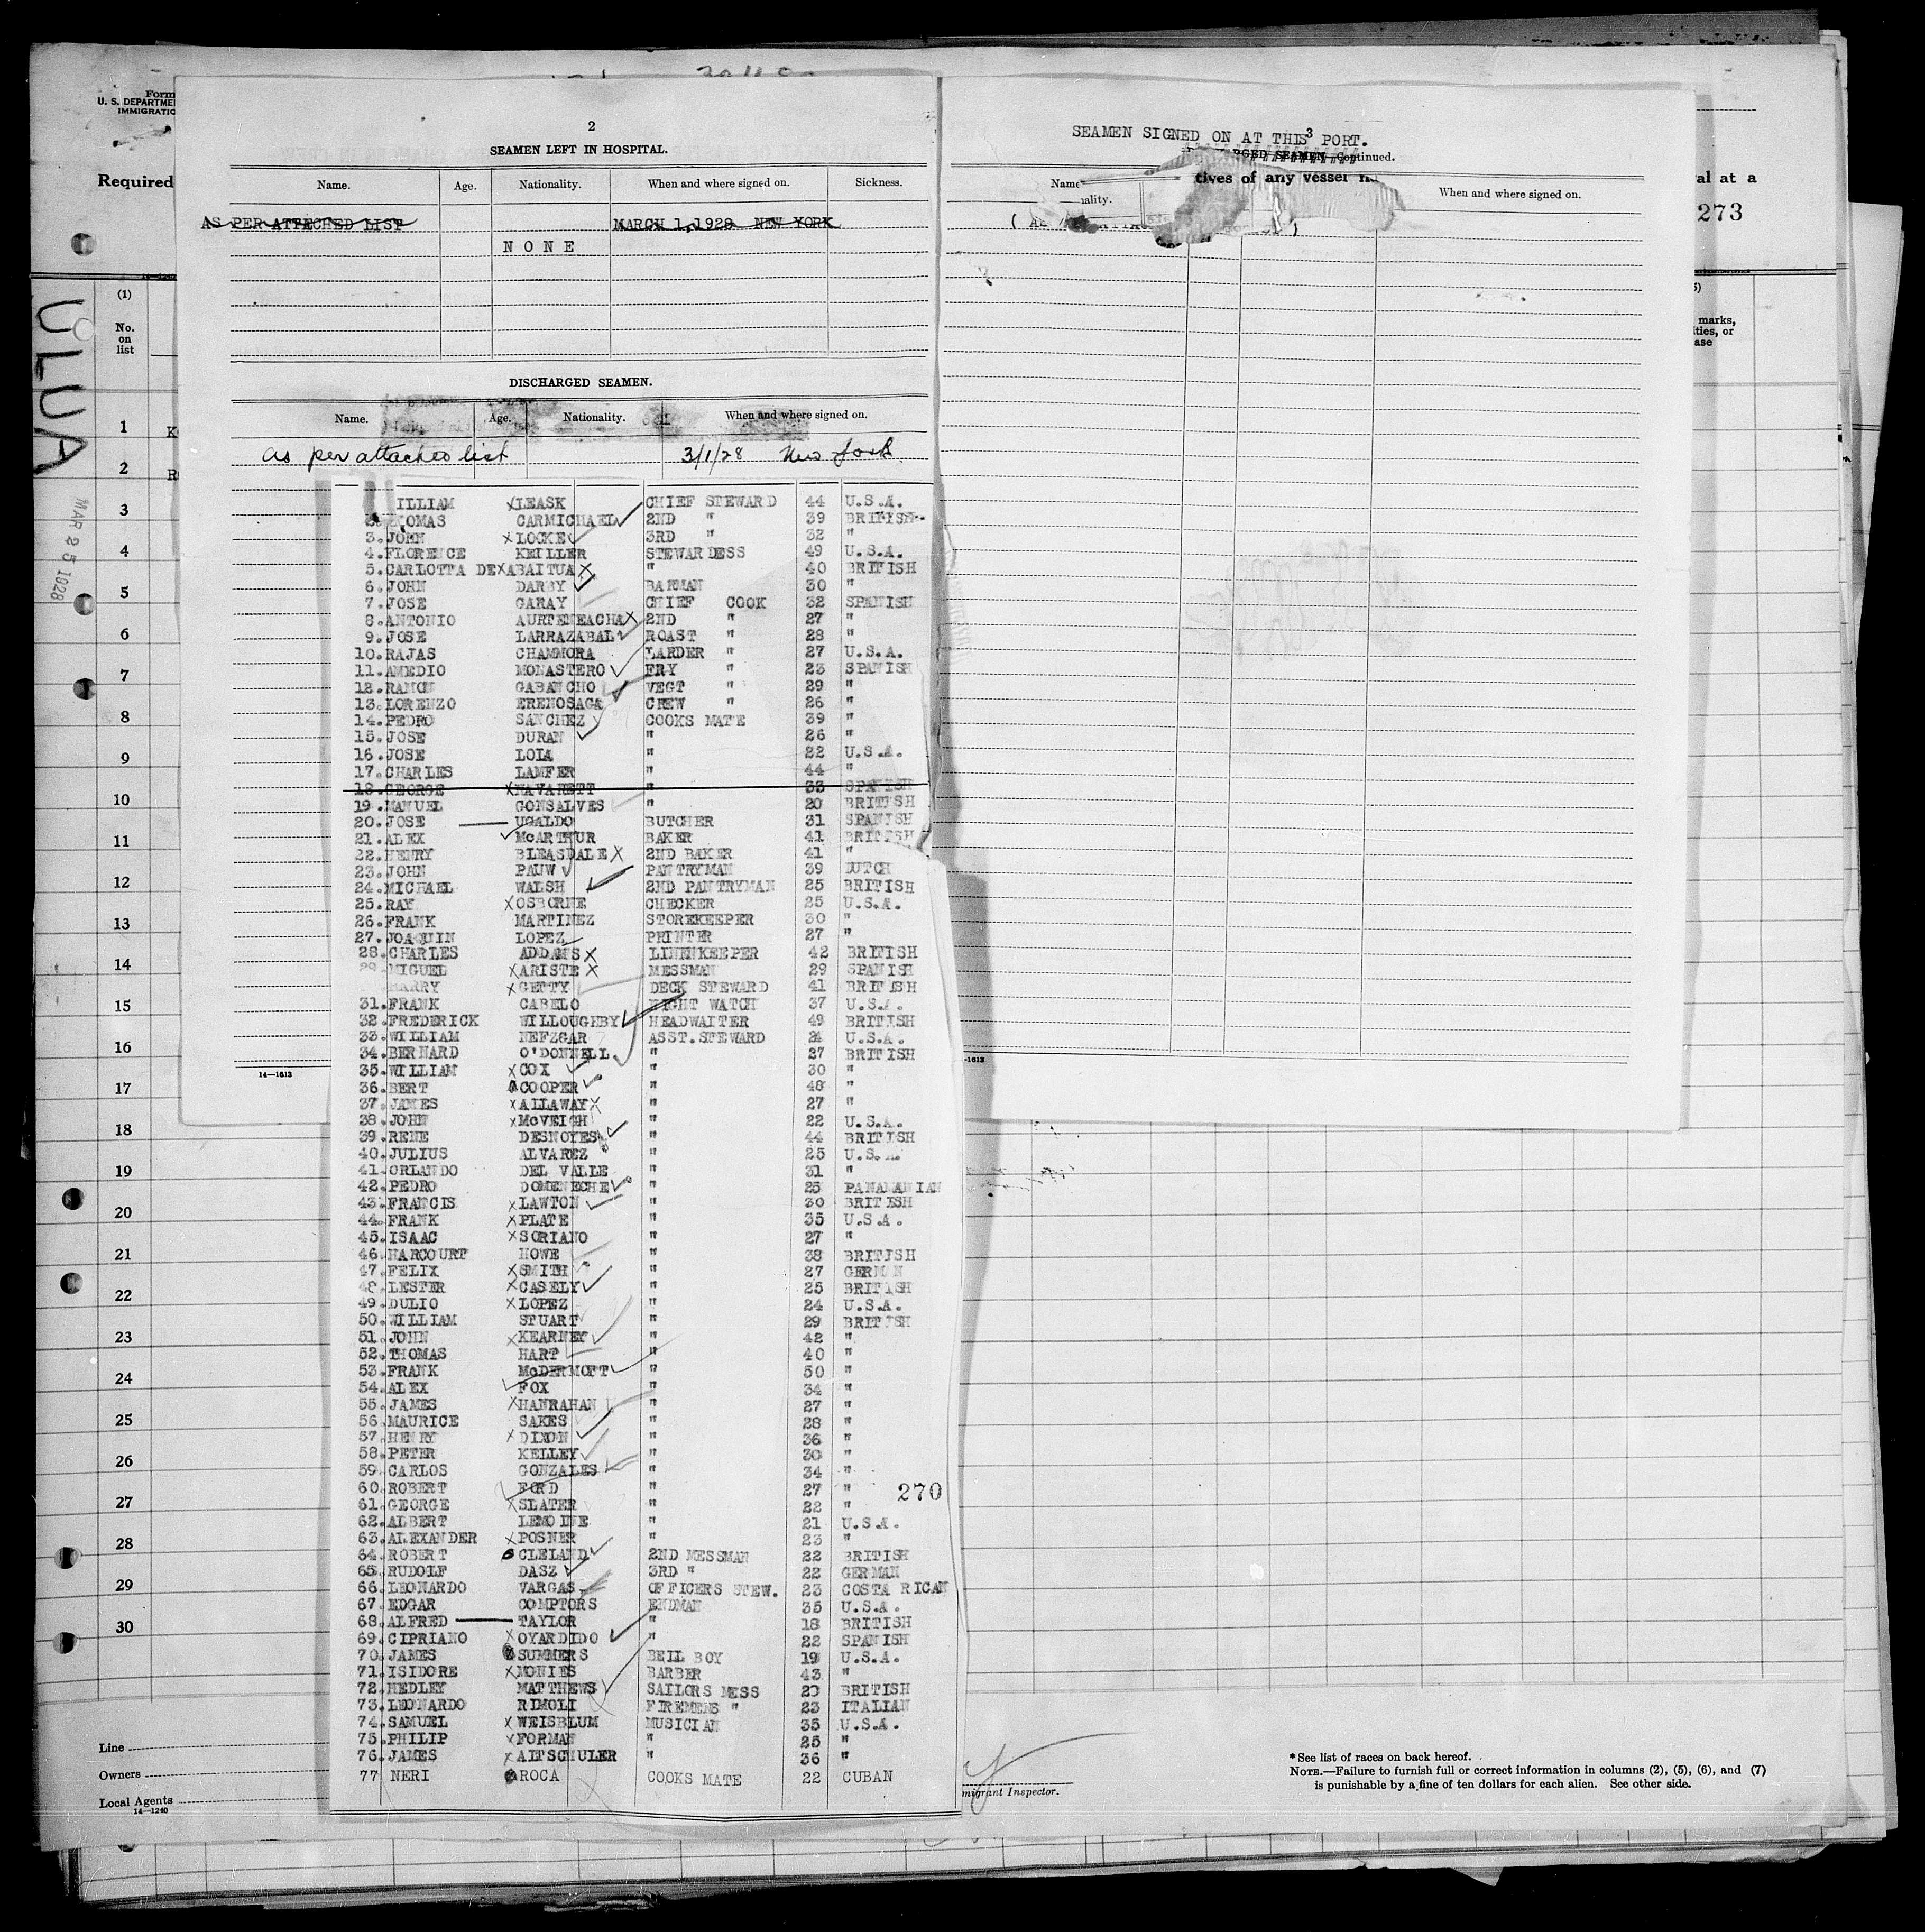 Form
U. S. DEPARTME
IMMIGRATIO
Required
ULUA
MAR 25 1928
(1)
No.
on
list
1
2
3
4
5
6
7
8
9
10
11
12
13
14
15
16
17
18
19
20
21
22
23
24
25
26
27
28
29
30
Line
Owners
Local Agents
14—1240
2
SEAMEN LEFT IN HOSPITAL.
Name. Age. Nationality. When and where signed on. Sickness.
AS PER ATTACHED LIST MARCH 1,1928 NEW YORK
NONE
DISCHARGED SEAMEN.
Name. Age. Nationality. When and where signed on.
as per attached list 3/1/28 New York
ILLIAM LEASK CHIEF STEWARD 44 U.S.A.
2. THOMAS CARMICHAEL 2ND " 39 BRITISH
3. JOHN LOCKE 3RD " 32 "
4. FLORENCE KEILLER STEWARDESS 49 U.S.A.
5. CARLOTTA DE ABAITUA " 40 BRITISH
6. JOHN DARBY BARMAN 30 "
7. JOSE GARAY CHIEF COOK 32 SPANISH
8. ANTONIO AURTENEACHA 2ND " 27 "
9. JOSE LARRAZABAL ROAST " 28 "
10. RAJAS CHAMMORA LARDER " 27 U.S.A.
11. AMEDIO MONASTERO FRY " 23 SPANISH
12. RAMON GABANCHO VEGT " 29 "
13. LORENZO ERENOSAGA CREW " 26 "
14. PEDRO SANCHEZ COOKS MATE 39 "
15. JOSE DURAN " 26 "
16. JOSE LOIA " 22 U.S.A.
17. CHARLES LAMFER " 44 "
18. GEORGE NAVARETT " 33 SPANISH
19. MANUEL GONSALVES " 20 BRITISH
20. JOSE UGALDO BUTCHER 31 SPANISH
21. ALEX McARTHUR BAKER 41 BRITISH
22. HENRY BLEASDALE 2ND BAKER 41 "
23. JOHN PAUW PANTRYMAN 39 DUTCH
24. MICHAEL WALSH 2ND PANTRYMAN 25 BRITISH
25. RAY OSBORNE CHECKER 25 U.S.A.
26. FRANK MARTINEZ STOREKEEPER 30 "
27. JOAQUIN LOPEZ PRINTER 27 "
28. CHARLES ADDAMS LINENKEEPER 42 BRITISH
29. MIGUEL ARISTE MESSMAN 29 SPANISH
HARRY GETTY DECK STEWARD 41 BRITISH
31. FRANK CABELO NIGHT WATCH 37 U.S.A.
32. FREDERICK WILLOUGHBY HEADWAITER 49 BRITISH
33. WILLIAM NEFZGAR ASST.STEWARD 24 U.S.A.
34. BERNARD O'DONNELL " 27 BRITISH
35. WILLIAM COX " 30 "
36. BERT COOPER " 48 "
37. JAMES ALLAWAY " 27 "
38. JOHN McVEIGH " 22 U.S.A.
39. RENE DESNOYES " 44 BRITISH
40. JULIUS ALVAREZ " 25 U.S.A.
41. ORLANDO DEL VALLE " 31 "
42. PEDRO DOMENECHE " 25 PANAMANIAN
43. FRANCIS LAWTON " 30 BRITISH
44. FRANK PLATE " 35 U.S.A.
45. ISAAC SORIANO " 27 "
46. HARCOURT HOWE " 38 BRITISH
47. FELIX SMITH " 27 GERMAN
48. LESTER CASELY " 25 BRITISH
49. DULIO LOPEZ " 24 U.S.A.
50. WILLIAM STUART " 29 BRITISH
51. JOHN KEARNEY " 42 "
52. THOMAS HART " 40 "
53. FRANK McDERMOTT " 50 "
54. ALEX FOX " 34 "
55. JAMES HANRAHAN " 27 "
56. MAURICE SAKES " 28 "
57. HENRY DIXON " 36 "
58. PETER KELLEY " 30 "
59. CARLOS GONZALES " 34 "
60. ROBERT FORD " 27 "
61. GEORGE SLATER " 22 "
62. ALBERT LEMOINE " 21 U.S.A.
63. ALEXANDER POSNER " 23 "
64. ROBERT CLELAND 2ND MESSMAN 22 BRITISH
65. RUDOLF DASZ 3RD " 22 GERMAN
66. LEONARDO VARGAS OFFICERS STEW. 23 COSTA RICAN
67. EDGAR COMPTORS ENDMAN 35 U.S.A.
68. ALFRED TAYLOR " 18 BRITISH
69. CIPRIANO OYARDIDO " 22 SPANISH
70. JAMES SUMMERS BELL BOY 19 U.S.A.
71. ISIDORE MONIES BARBER 43 "
72. HEDLEY MATTHEWS SAILORS MESS 20 BRITISH
73. LEONARDO RIMOLI FIREMENS " 23 ITALIAN
74. SAMUEL WEISBLUM MUSICIAN 35 U.S.A.
75. PHILIP FORMAN " 25 "
76. JAMES ALTSCHULER " 36 "
77 NERI ROCA COOKS MATE 22 CUBAN
270
14—1613
3
SEAMEN SIGNED ON AT THIS PORT.
DISCHARGED SEAMEN—Continued.
tives of any vessel
Name
ality.
When and where signed on.
-1613
al at a
273
marks,
ities, or
ase
migrant Inspector.
*See list of races on back hereof.
NOTE.—Failure to furnish full or correct information in columns (2), (5), (6), and (7)
is punishable by a fine of ten dollars for each alien. See other side.